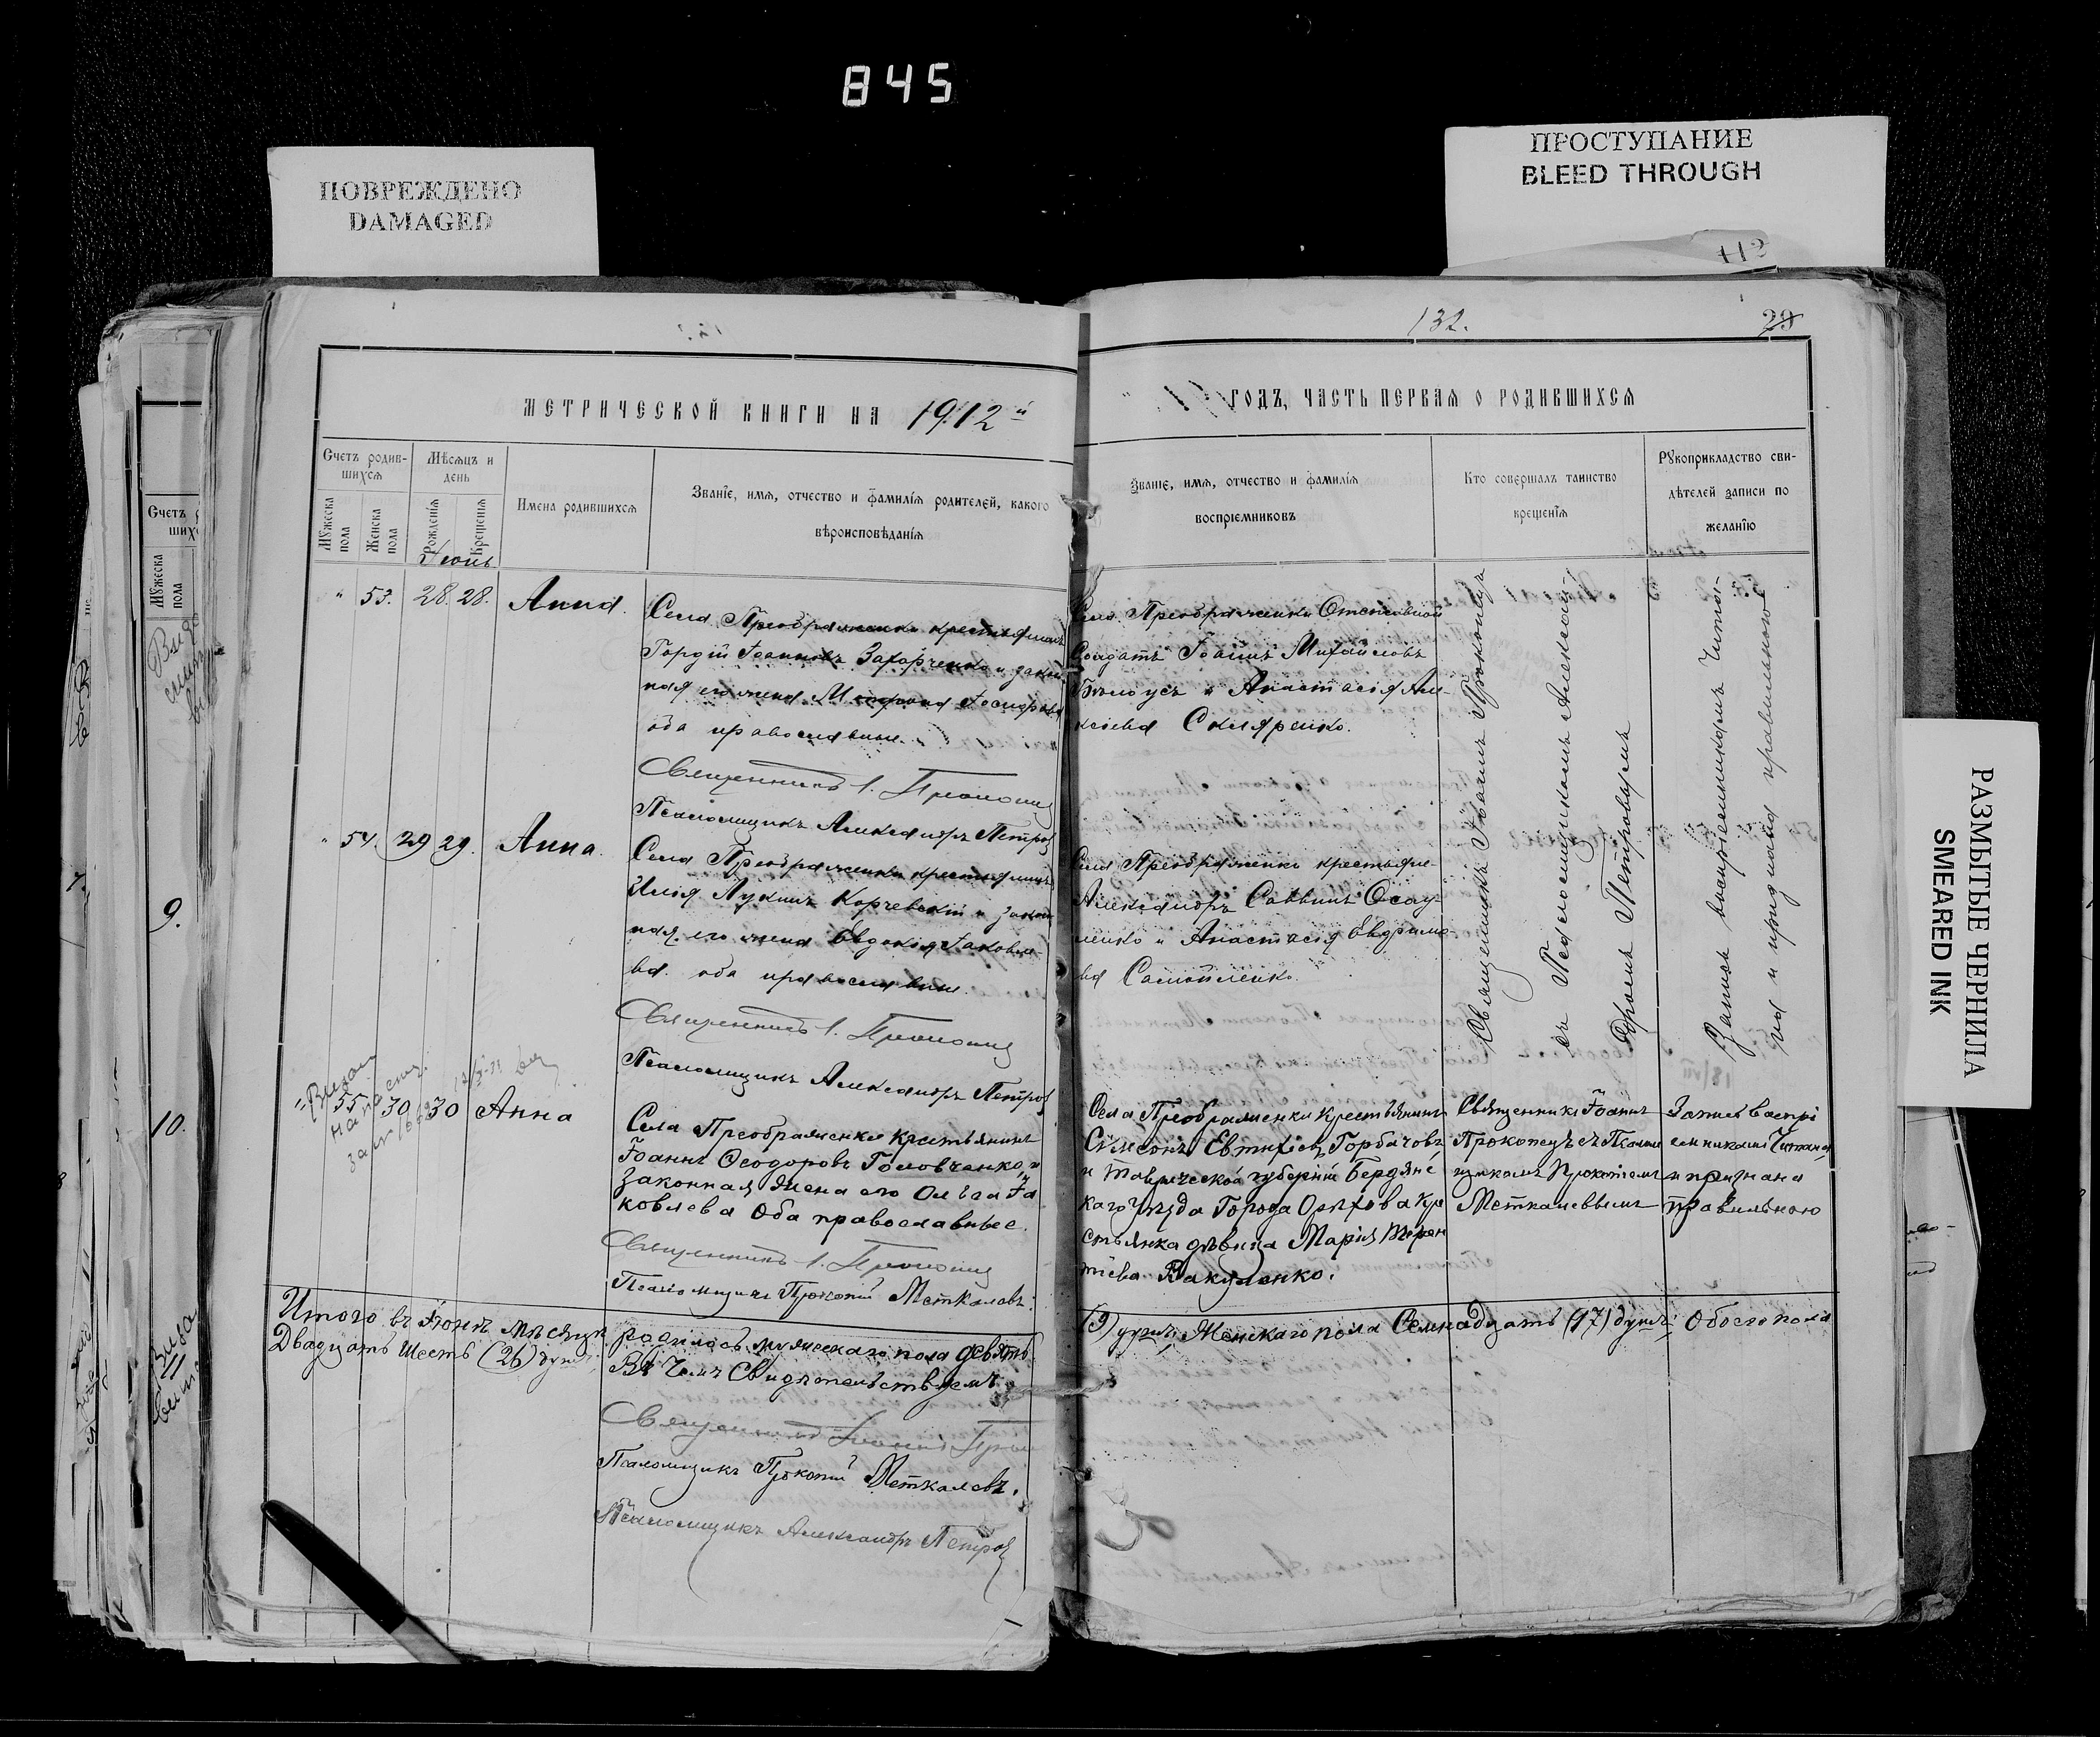 845
ПОВРЕЖДЕНО
DAMAGED
ПРОСТУПАНИЕ
BLEED THROUGH
113
132.
29
МЕТРИЧЕСКОЙ КНИГИ НА 1912 й
ГОДЪ, ЧАСТЬ ПЕРВАЯ О РОДИВШИХСЯ
Счетъ родив-
шихся
Мѣсяцъ и
день
Мꙋжеска
пола
Женска
пола
Рожденія
Крещенія
Имена родившихся
Званіе, имя, отчество и фамилія родителей, какого
вѣроисповѣданія
Званіе, имя, отчество и фамилія
воспріемниковъ
Кто совершалъ таинство
крещенія
Рꙋкоприкладство сви-
дѣтелей записи по
желанію
Іюнь
" 53. 28. 28. Анна.
Села Преображенки крестьянинъ
Гордій Іоанновъ Захарченко и закон-
ная его жена Матрона
оба православные.
Священникъ І. Прокопецъ
Псаломщикъ Александръ Петров
Села Преображенки Отставной
Солдатъ Іоаннъ Михайловъ
Бѣлоусъ и Анастасія Але-
ксіева Скляренко.
Священникъ Іоаннъ Прокопецъ
съ Псаломщикомъ Александ-
дромъ Петровымъ
Запись воспріемникамъ Чита-
на и признана правильною
" 54. 29 29. Анна.
Села Преображенки крестьянинъ
Илія Лукинъ Корчевскій и закон
ная его жена Евдокія Іаковле-
ва оба православные.
Священникъ І. Прокопецъ
Псаломщикъ Александръ Петров
Села Преображенки крестьяне
Александръ Саввинъ Осау-
ленко и Анастасія Евфимо-
ва Самойленко.
" 55 30 30 Анна
Села Преображенки Крестьянинъ
Іоаннъ Ѳеодоровъ Головченко и
Законная Жена его Ольга Іа
ковлева Оба православные.
Священникъ І. Прокопецъ
Псаломщикъ Прокопій Меткалевъ.
Села Преображенки Крестьянинъ
Симеонъ Евтихіевъ Горбачовъ
и Таврической губерніи Бердянс
каго Уѣзда Города Орѣхова Кре
стьянка дѣвица Марія Терен
тіева Вакуленко.
Священникъ Іоаннъ
Прокопецъ съ Псалом
щикомъ Прокопіемъ
Меткалевымъ
Запись воспрі
емникамъ Читана
и признана
правильною
Итого въ Іюнѣ мѣсяцѣ родилось мужескаго пола девять
(9) душъ, Женскаго пола Семнадцать (17) душъ; Обоего пола
Двадцать Шесть (26) душъ, Въ Чемъ Свидѣтельствуемъ
Священникъ Іоаннъ Прок
Псаломщикъ Прокопій Меткалевъ.
Псаломщикъ Александръ Петров
Счетъ
ших
Мꙋжеска
пола
9.
10.
РАЗМЫТЫЕ ЧЕРНИЛА
SMEARED INK